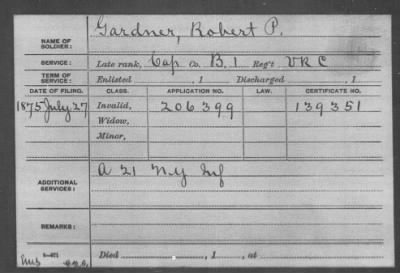 Gardner, Robert P.
NAME OF SOLDIER:
SERVICE: Late rank, Cap Co. B, 1 Reg't VRC
TERM OF SERVICE: Enlisted , 1 Discharged , 1
DATE OF FILING. CLASS. APPLICATION NO. LAW. CERTIFICATE NO.
1875 July 27 Invalid, 206399 139351
Widow,
Minor,
A 21 N.Y. Inf
ADDITIONAL SERVICES:
REMARKS:
Died , 1 , at